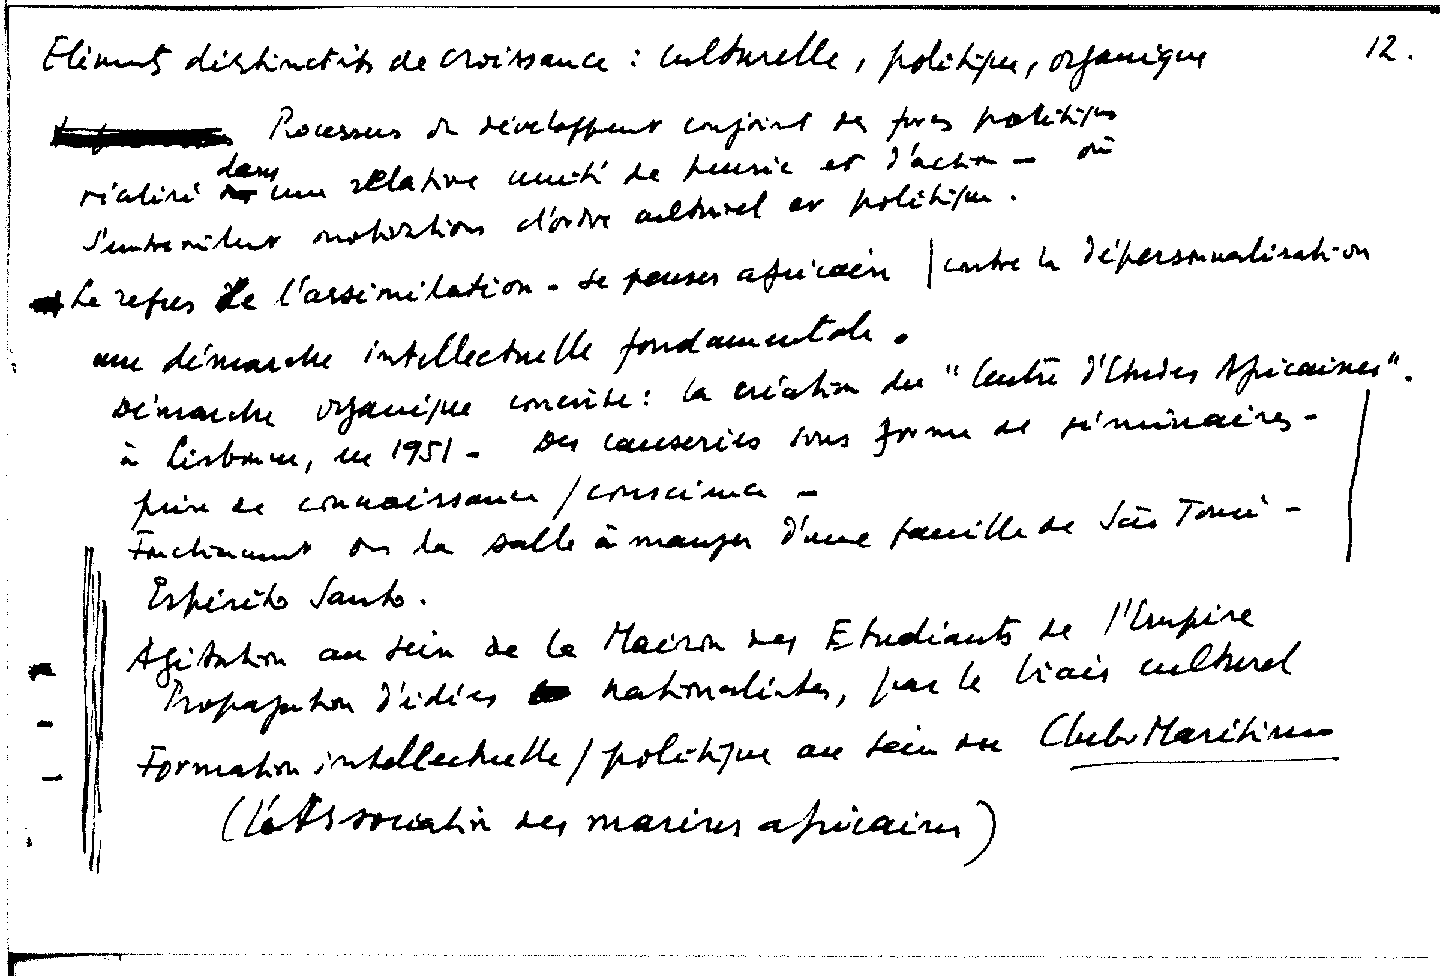 Eléments distinctifs de croissance : culturelle, politique, organique 12.
Processus de développement conjoint des forces politiques
réalisé dans une relative unité de pensée et d'action – où
s'entremêlent motivations d'ordre culturel et politique.
Le refus de l'assimilation - se penser africain / contre la dépersonnalisation
une démarche intellectuelle fondamentale.
Démarche organique concrète : la création du "Centre d'Etudes Africaines".
à Lisbonne, en 1951 - Des causeries sous forme de séminaires -
prise de connaissance / conscience -
Fonctionnant ds la salle à manger d'une famille de São Tomé -
Espírito Santo.
Agitation au sein de la Maison des Etudiants de l'Empire
Propagation d'idées nationalistes, par le biais culturel
Formation intellectuelle / politique au sein du Clube Marítimo
(L'Association des marins africains)